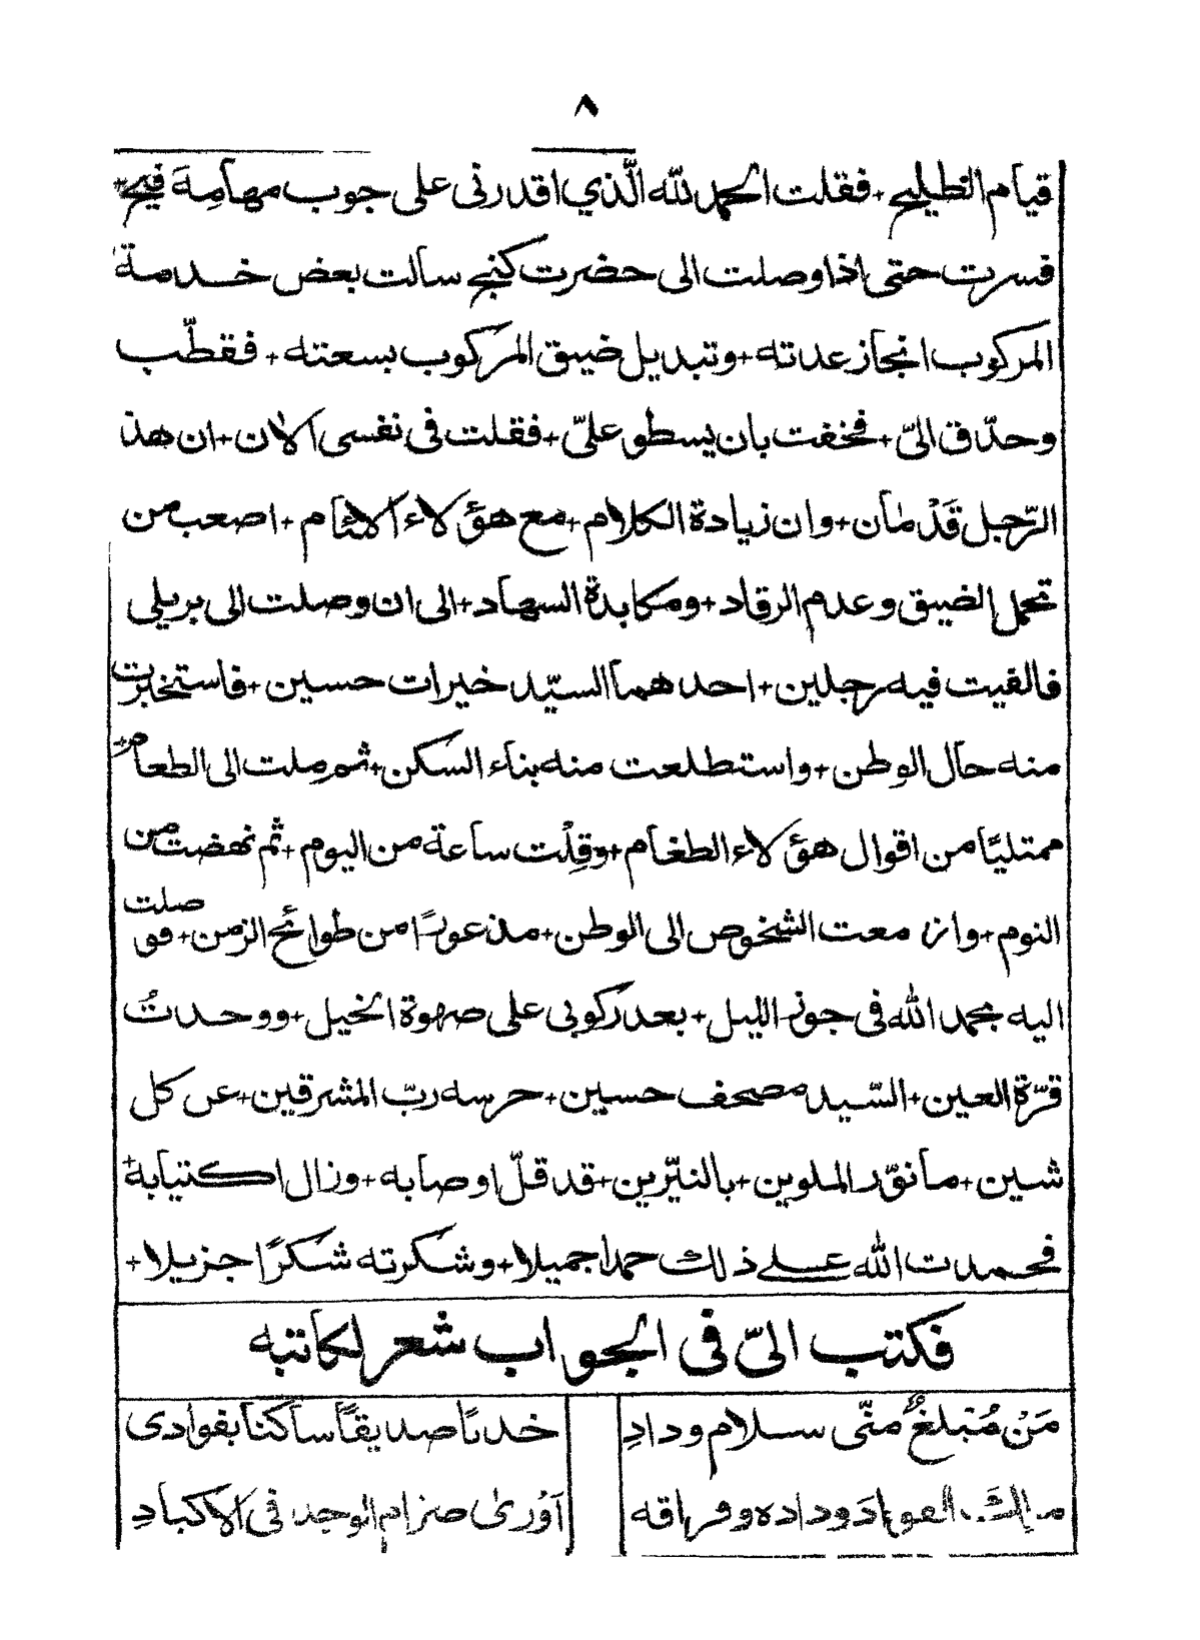 ٨
قيام الطليح + فقلت الحمد لله الّذي اقدرنى على جوب مهامِهَ فيح +
فسرت حتى اذا وصلت الى حضرت كنج سالت بعض خدمة
المركوب انجاز عدته + وتبديل ضيق المركوب بسعته + فقطّب
وحدّق الىّ + فخفت بان يسطو علىّ + فقلت فى نفسى الان + ان هذ
الرّجل قَدْ مان + وان زيادة الكلام + مع هؤلاء الائام + اصعب من
تحمل الضيق وعدم الرقاد + ومكابدة السهاد + الى ان وصلت الى بريلى
فالفيت فيه رجلين + احدهما السيّد خيرات حسين + فاستخبرت
منه حال الوطن + واستطلعت منه بناء السكن + ثم مِلت الى الطعام +
ممتليًا من اقوال هؤلاء الطغام + وقِلْت ساعة من اليوم + ثم نهضت من
النوم + وازمعت الشخوص الى الوطن + مذعورًا من طوائح الزمن + فوصلت
اليه بحمد الله فى جوز الليل + بعد ركوبى على صهوة الخيل + ووجدتُ
قرّة العين + السّيد مصحف حسين + حرسه ربّ المشرقين + عن كل
شين + ما نوّر الملوين + بالنيّرين + قد قلّ اوصابه + وزال اكتيابه +
فحمدت الله على ذلك حمدا جميلا + وشكرته شكرًا جزيلا +
فكتب الىّ فى الجواب شعر لكاتبه
مَنْ مُبْلغٌ منّى سلام ودادِ
خدنًا صديقًا ساكنا بفوادى
مالِكَ الفوادَ وداده وفراقه
آوْرىٰ ضرام الوجد فى الاكبادِ